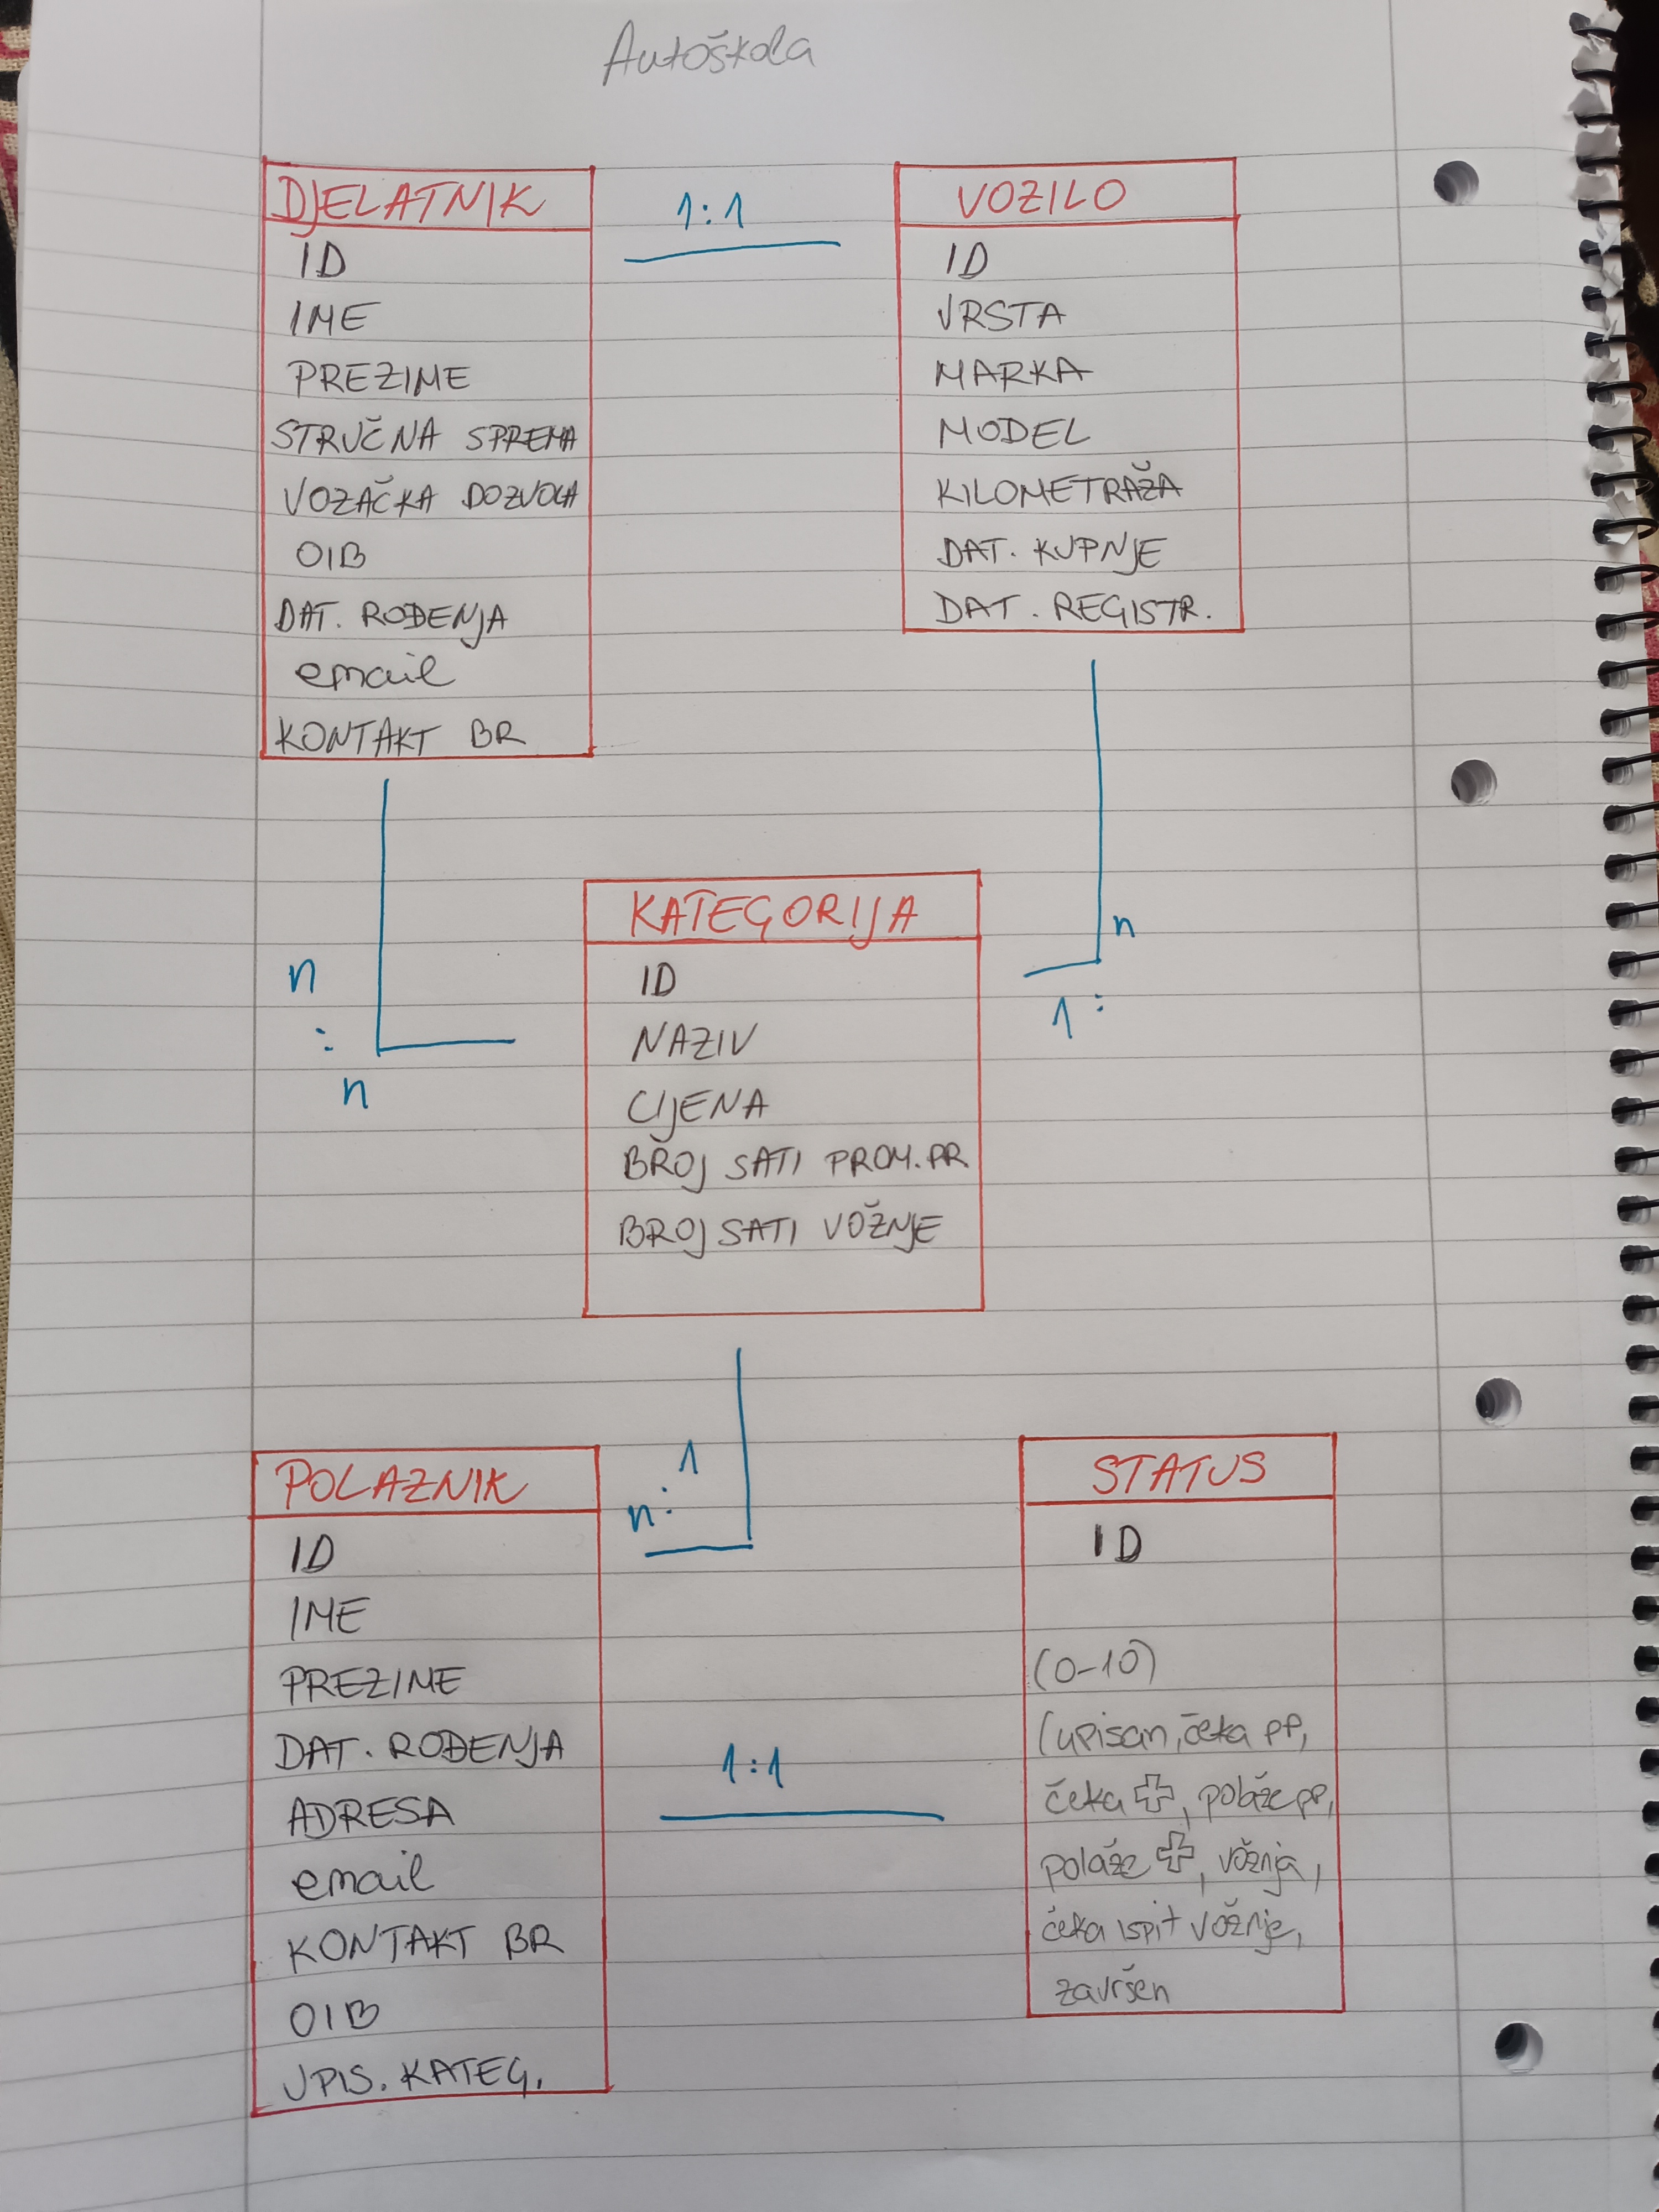 Autoškola
DJELATNIK
ID
IME
PREZIME
STRUČNA SPREMA
VOZAČKA DOZVOLA
OIB
DAT. ROĐENJA
email
KONTAKT BR
1:1
VOZILO
ID
VRSTA
MARKA
MODEL
KILOMETRAŽA
DAT. KUPNJE
DAT. REGISTR.
n
:
n
KATEGORIJA
ID
NAZIV
CIJENA
BROJ SATI PROM.PR
BROJ SATI VOŽNJE
n
1 :
1
n:
POLAZNIK
ID
IME
PREZIME
DAT. ROĐENJA
ADRESA
email
KONTAKT BR
OIB
UPIS. KATEG.
1:1
STATUS
ID
(0-10)
(upisan, čeka pp,
čeka , polaže pp,
polaže , vožnja,
čeka ispit vožnje,
završen